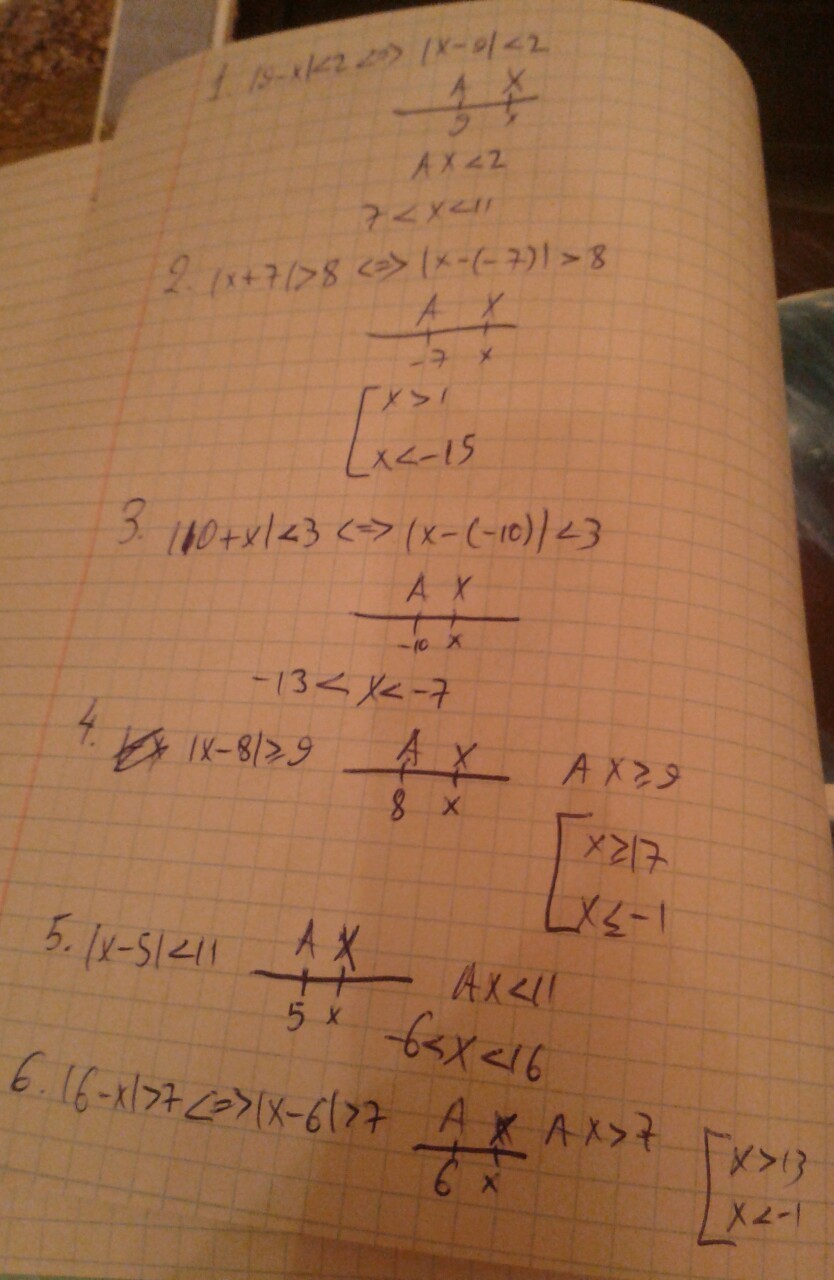 1. |9-x|<2 <=> |x-9|<2
A X
9 x
AX<2
7<x<11
2. |x+7|>8 <=> |x-(-7)|>8
A X
-7 x
[ x>1
x<-15
3. |10+x|<3 <=> |x-(-10)|<3
A X
-10 x
-13<x<-7
4. |x-8|≥9 A X AX≥9
8 x
[ x≥17
x≤-1
5. |x-5|<11 A X AX<11
5 x
-6<x<16
6. |6-x|>7 <=> |x-6|>7 A X AX>7 [ x>13
6 x x<-1